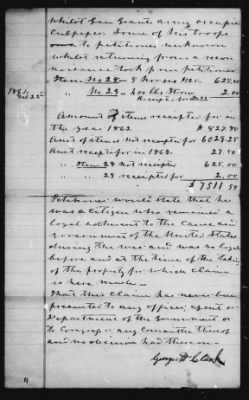 whilst Gen Grants army occupied
Culpeper. Some of his troops
to petitioner unknown
whilst returning from a
took from petitioner
Item No 28 - 5 horses 625.00
1864
" No 29 - 400 lbs 2.00
Receipt for
Amount of items receipted for in
the year 1862 $ 827.80
Amt of items not receipted for 6029.25
Amt receipted for in 1863. 27.00
" Item 28 not receipted 625.00
" 29 receipted for 2.00
$ 7511
Petitioner would state that he
was a citizen who remained a
loyal adherent to the cause and
government of the United States
during the war and was so loyal
before and at the time of the taking
of the property for which claim
is here made -
That this claim has never been
presented to any officer, agent or
Department of the Government or
to Congress or any Committee thereof
and no decision had thereon -
George H Clark